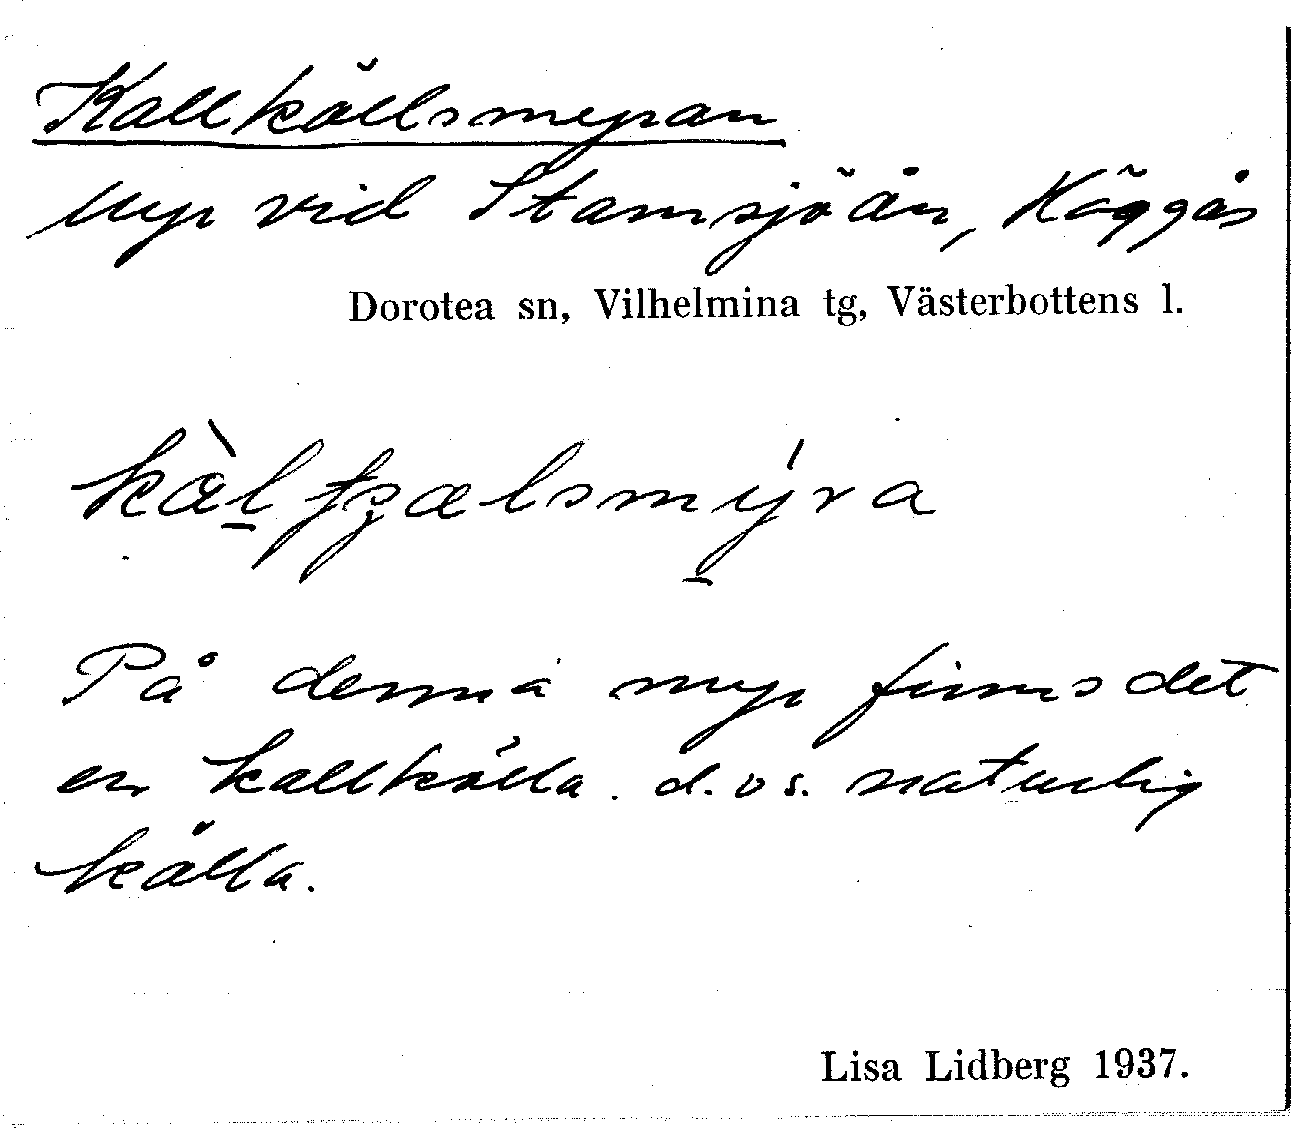 Kallkällsmyran
Myr vid Stamsjöån, Häggås
Dorotea sn, Vilhelmina tg, Västerbottens l.
På denna myr finns det
en kallkälla. d.v s. naturlig
källa.
Lisa Lidberg 1937.